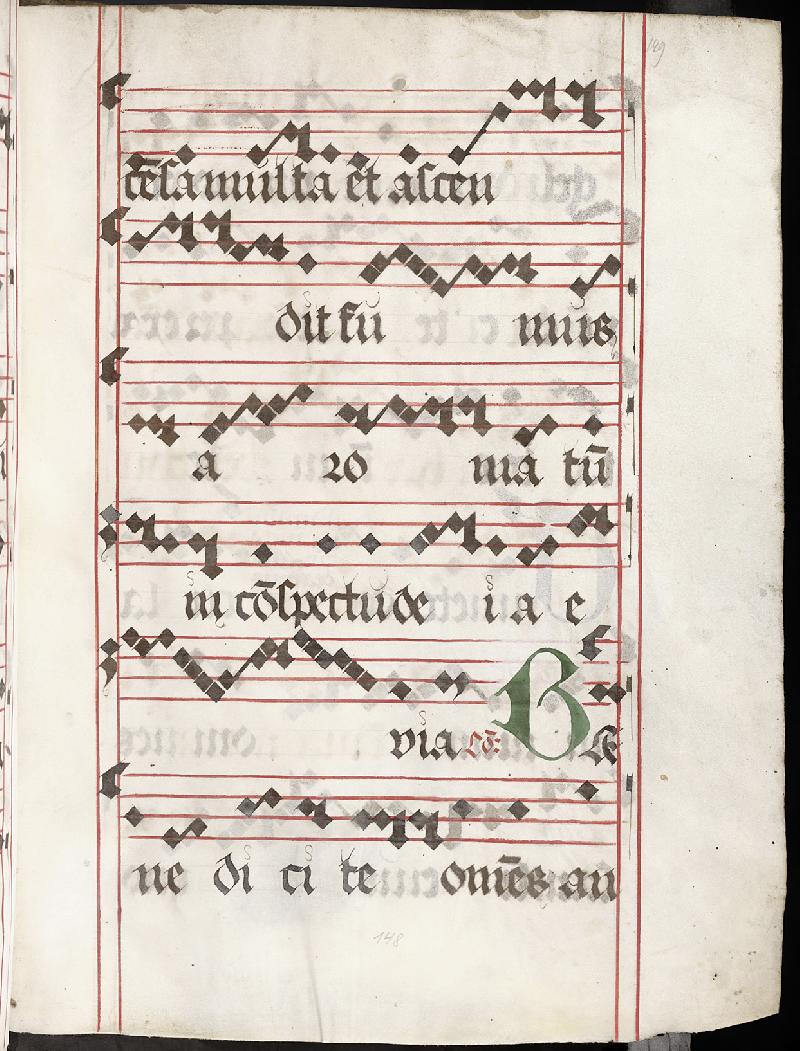 149
cēsa multa et ascen
dit fu mus
a ro ma tū
in cōspectu de i a e
via Cō: Be
ne di ci te omēs an
148